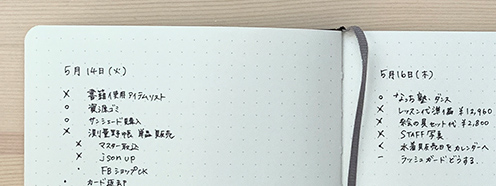 5月14日(火)
× 書籍使用アイテムリスト
○ 資源ゴミ
○ サンシェード購入
× 測量野帳 単品販売
× マスター取込
× json up
・ FBショップck
・ カード
5月16日(木)
○ なっち塾・ダンス
× レッスン代準備 ¥12,960
× 絵の具セット代 ¥2,800
× STAFF写真
< 水着販売日をカレンダーへ
− ラッシュガードどうする..